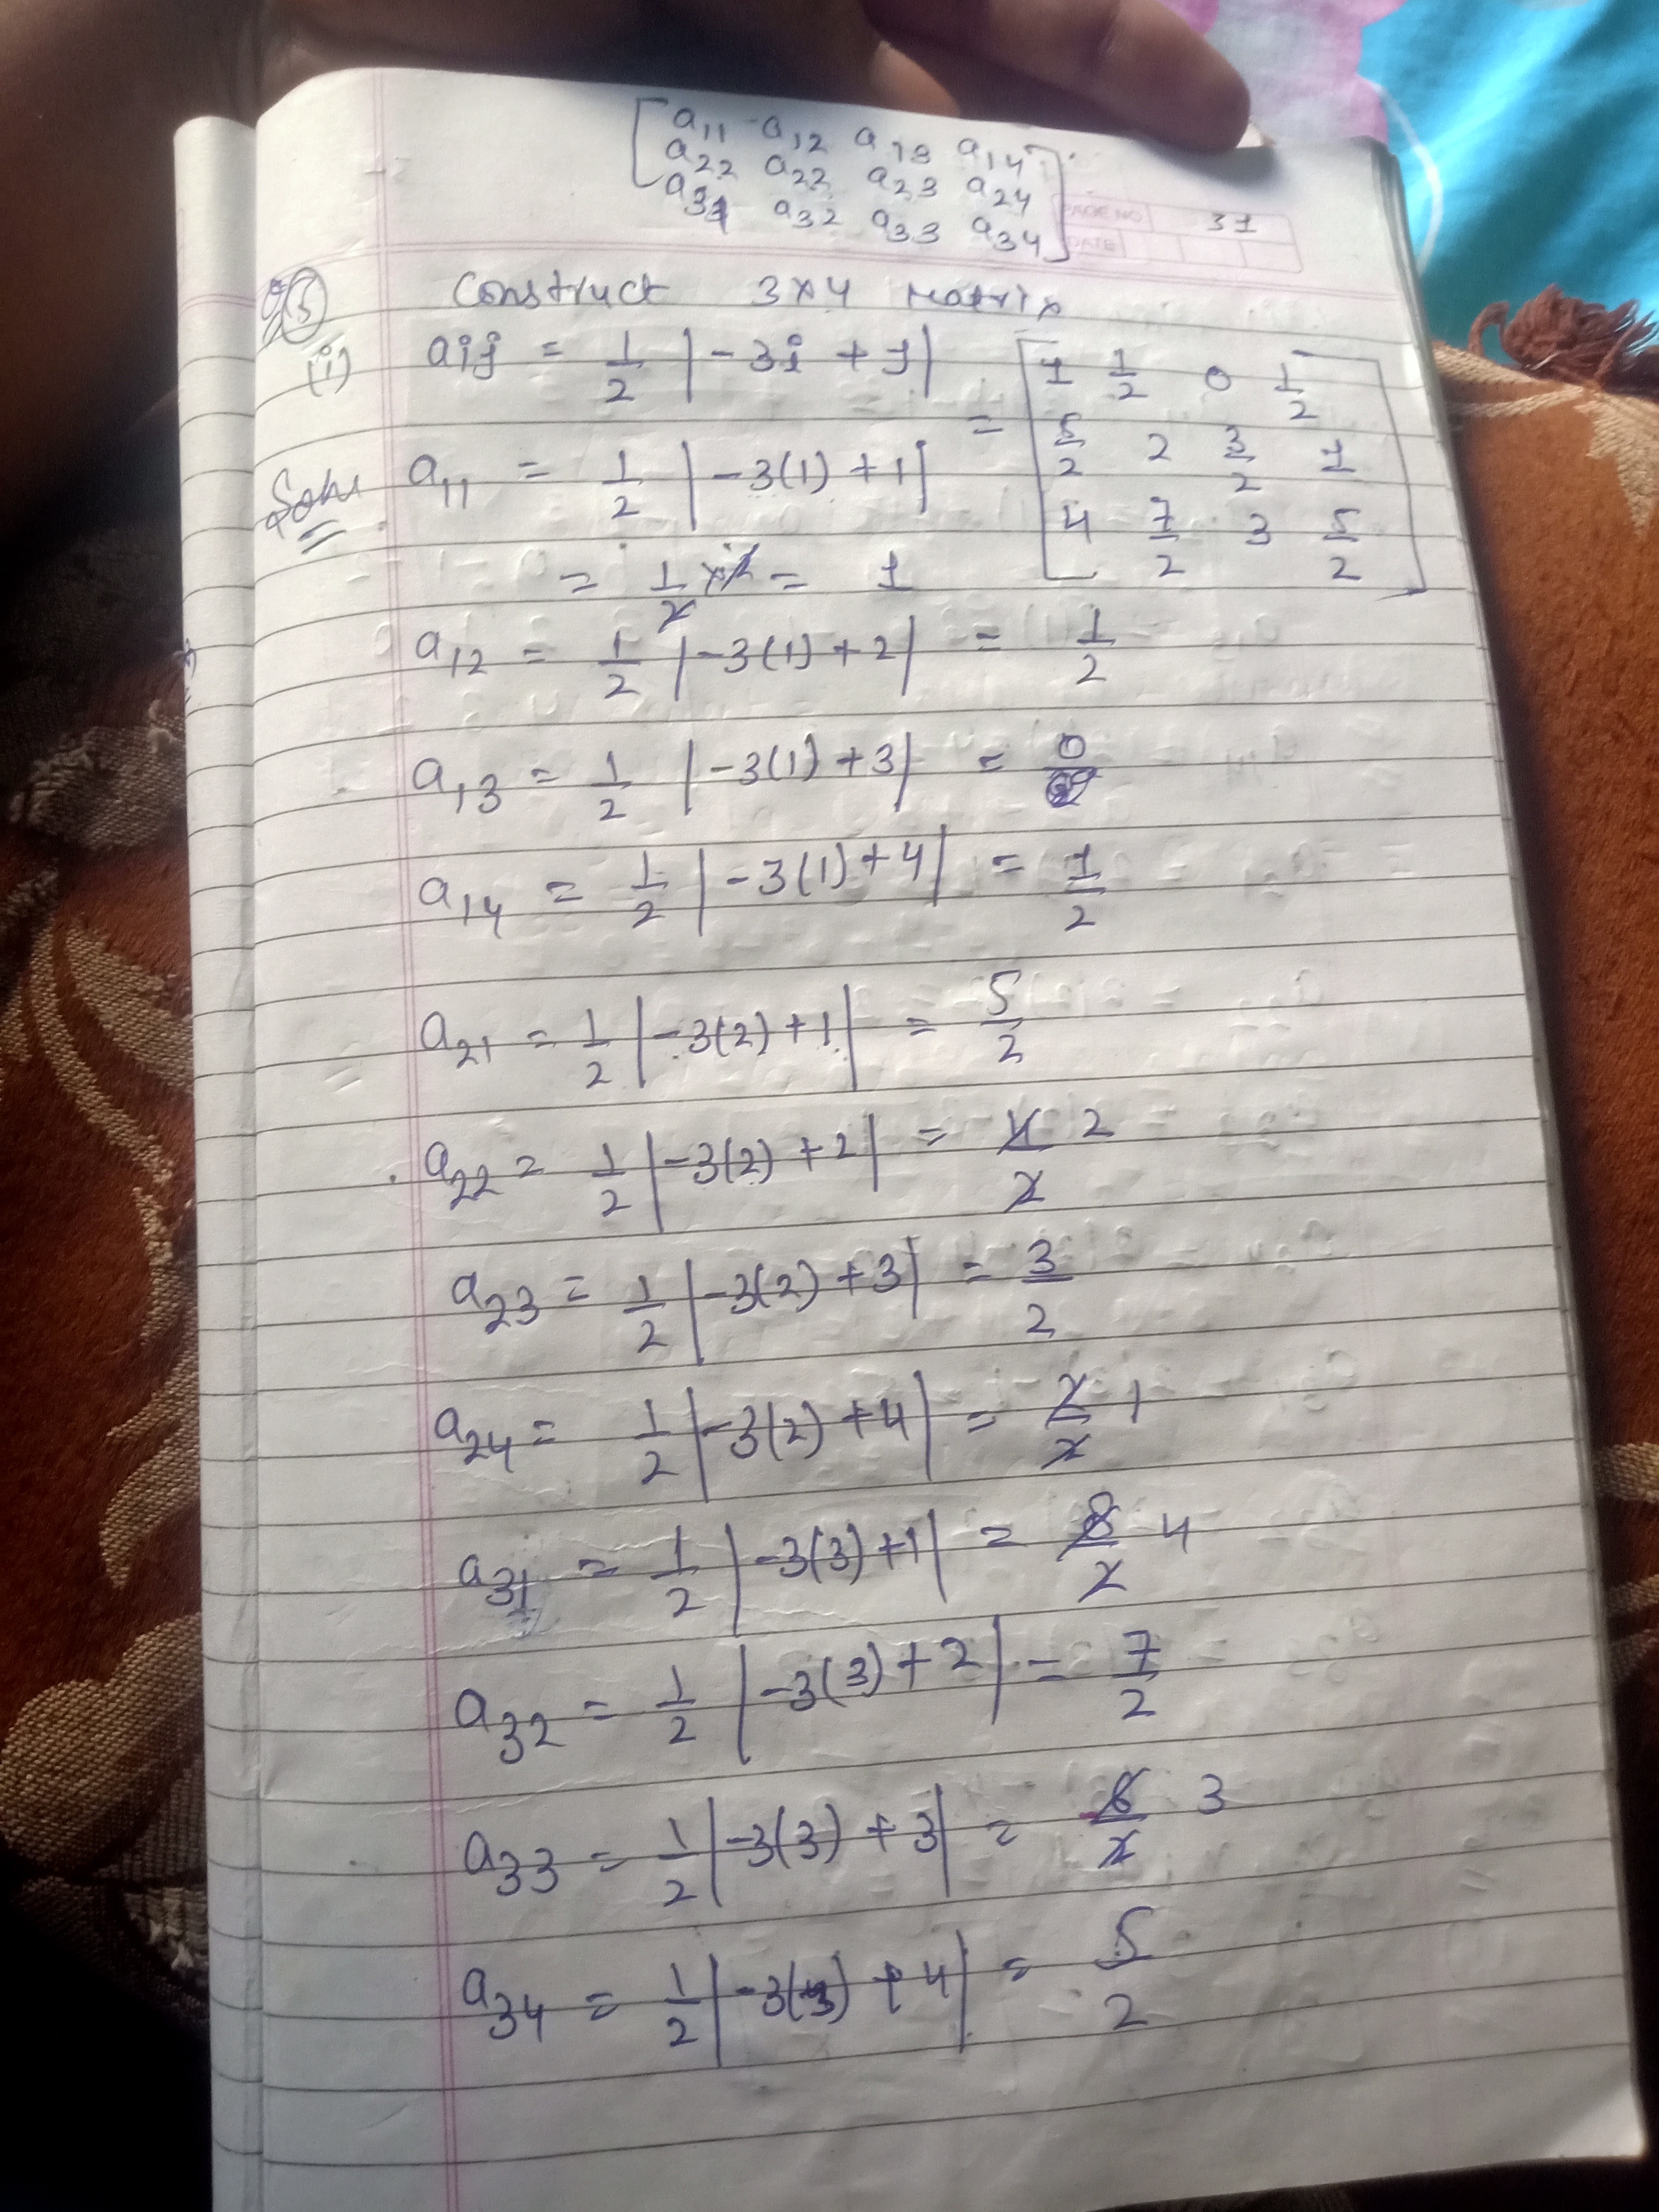 [a11 a12 a13 a14
a22 a22 a23 a24
a31 a32 a33 a34]
PAGE NO 31
DATE
Construct 3×4 Matrix
(i) aij = 1/2 |-3i + j| = [1 1/2 0 1/2
5/2 2 3/2 1
4 7/2 3 5/2]
Soln a11 = 1/2 |-3(1) + 1|
= 1/2 × 2 = 1
a12 = 1/2 |-3(1) + 2| = 1/2
a13 = 1/2 |-3(1) + 3| = 0
a14 = 1/2 |-3(1) + 4| = 1/2
a21 = 1/2 |-3(2) + 1| = 5/2
a22 = 1/2 |-3(2) + 2| = 4/2 2
a23 = 1/2 |-3(2) + 3| = 3/2
a24 = 1/2 |-3(2) + 4| = 2/2 1
a31 = 1/2 |-3(3) + 1| = 8/2 4
a32 = 1/2 |-3(3) + 2| = 7/2
a33 = 1/2 |-3(3) + 3| = 6/2 3
a34 = 1/2 |-3(3) + 4| = 5/2